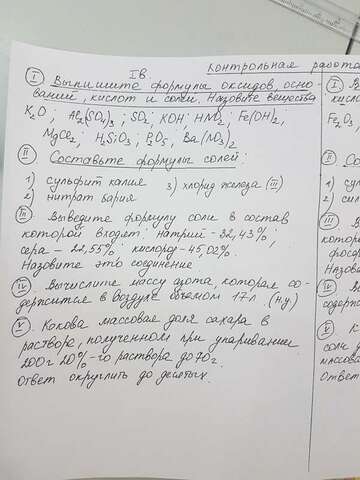 IВ. Контрольная работа
I Выпишите формулы оксидов, осно-
ваний, кислот и солей. Назовите вещества
K₂O ; Al₂(SO₄)₃ ; SO₂ ; KOH ; HNO₃ ; Fe(OH)₂ ,
MgCl₂ ; H₂SiO₃ ; P₂O₅ ; Ba(NO₃)₂
II Составьте формулы солей:
1) сульфит калия 3) хлорид железа (III)
2) нитрат бария
III. Выведите формулу соли в состав
которой входят: натрий - 32,43% ;
сера - 22,55% ; кислород - 45,02%.
Назовите это соединение
IV. Вычислите массу азота, которая со-
держится в воздухе объемом 17л. (н.у.)
V. Какова массовая доля сахара в
растворе, полученном при упаривании
200г 20%-го раствора до 70г.
ответ округлить до десятых.
I
кисл
Fe₂O₃
II Со
1) су
2) сил
III
котор
фосф
Назов
IV
содер
V К
соли
массова
Ответ